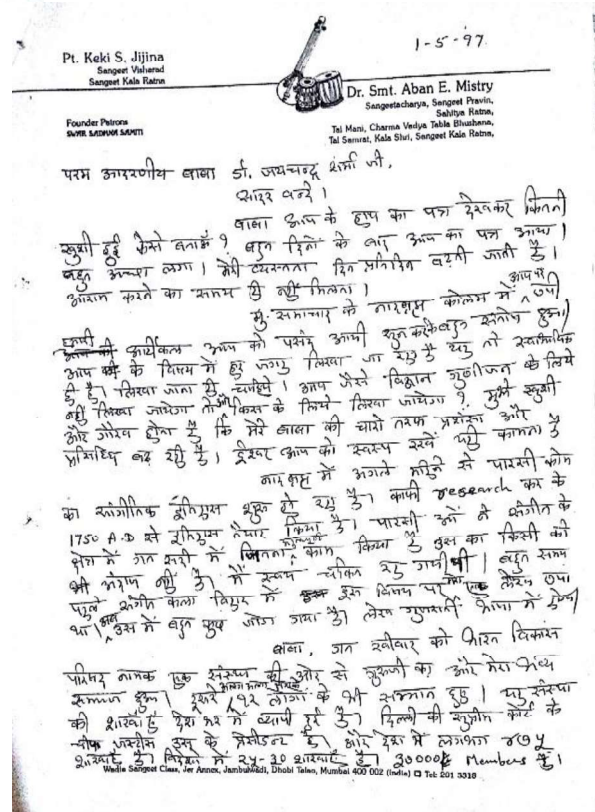 1-5-97.
Pt. Keki S. Jijina
Sangeet Visharad
Sangeet Kala Ratna
Dr. Smt. Aban E. Mistry
Sangeetacharya, Sangeet Pravin,
Sahitya Ratna,
Tal Mani, Charma Vadya Tabla Bhushana,
Tal Samrat, Kala Shri, Sangeet Kala Ratna,
Founder Patrons
SWAR SADHNA SAMITI
परम आदरणीय बाबा डॉ. जयचन्द्र शर्मा जी,
सादर वन्दे।
बाबा आप के हाथ का पत्र देखकर कितनी
खुशी हुई कैसे बताऊँ? बहुत दिनों के बाद आप का पत्र आया।
बहुत अच्छा लगा। मेरी व्यस्तता दिन प्रतिदिन बढ़ती जाती है।
आराम करने का समय ही नहीं मिलता।
मु. समाचार के नादब्रह्म कोलम में आप पर छपी
आर्टीकल आप को पसंद आयी सुन करके बहुत संतोष हुआ।
आप के विषय में हर जगह लिखा जा रहा है यह तो स्वाभाविक
ही है। लिखा जाना ही चाहिये। आप जैसे विद्वान गुणीजन के लिये
नहीं लिखा जायेगा तो और किस के लिये लिखा जायेगा? मुझे खुशी
और गौरव होता है कि मेरे बाबा की चारो तरफ प्रशंसा और
प्रसिध्दि बढ़ रही है। ईश्वर आप को स्वस्थ रखें यही कामना है
नादब्रह्म में अगले महिने से पारसी कोम
का सांगीतिक इतिहास शुरू हो रहा है। काफी research कर के
1750 A.D से इतिहास तैयार किया है। पारसीओं ने संगीत के
क्षेत्र में गत सदी में जितना काम किया है उस का किसी को
भी अंदाज नहीं है। मैं स्वयं चकित रह गयी थी। बहुत समय
पहले संगीत कला विहार में इस विषय पर लेख छपा
था। अब उस में बहुत कुछ जोडा गया है। लेख गुजराती भाषा में
बाबा, गत रवीवार को भारत विकास
परिषद नामक एक संस्था की ओर से गुरूजी का और मेरा भव्य
सम्मान हुआ। दूसरे १२ लोगों के भी सम्मान हुए। यह संस्था
की शाखाएँ देश भर में व्यापी हुई है। दिल्ली की सुप्रीम कोर्ट के
चीफ जस्टीस उस के प्रेसीडन्ट है। और देश में लगभग ४७५
शाखाएँ है। विदेश में २५-३० शाखाएँ है। 30000 Members है।
Wadia Sangeet Class, Jer Annex, Jambulwadi, Dhobi Talao, Mumbai 400 002 (India) Tel: 201 3310